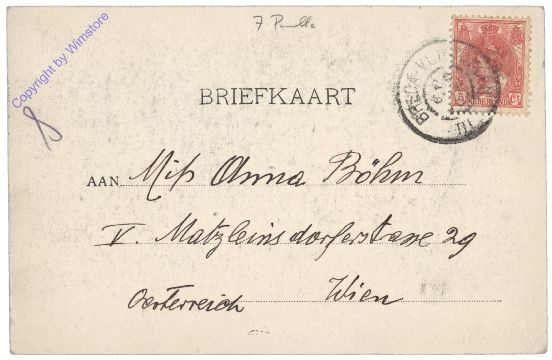 Copyright by Wimstore
8
BRIEFKAART
AAN Miss Anna Böhm
V. Matzleinsdorferstasse 29
Oesterreich Wien
5 NEDERLAND Ct